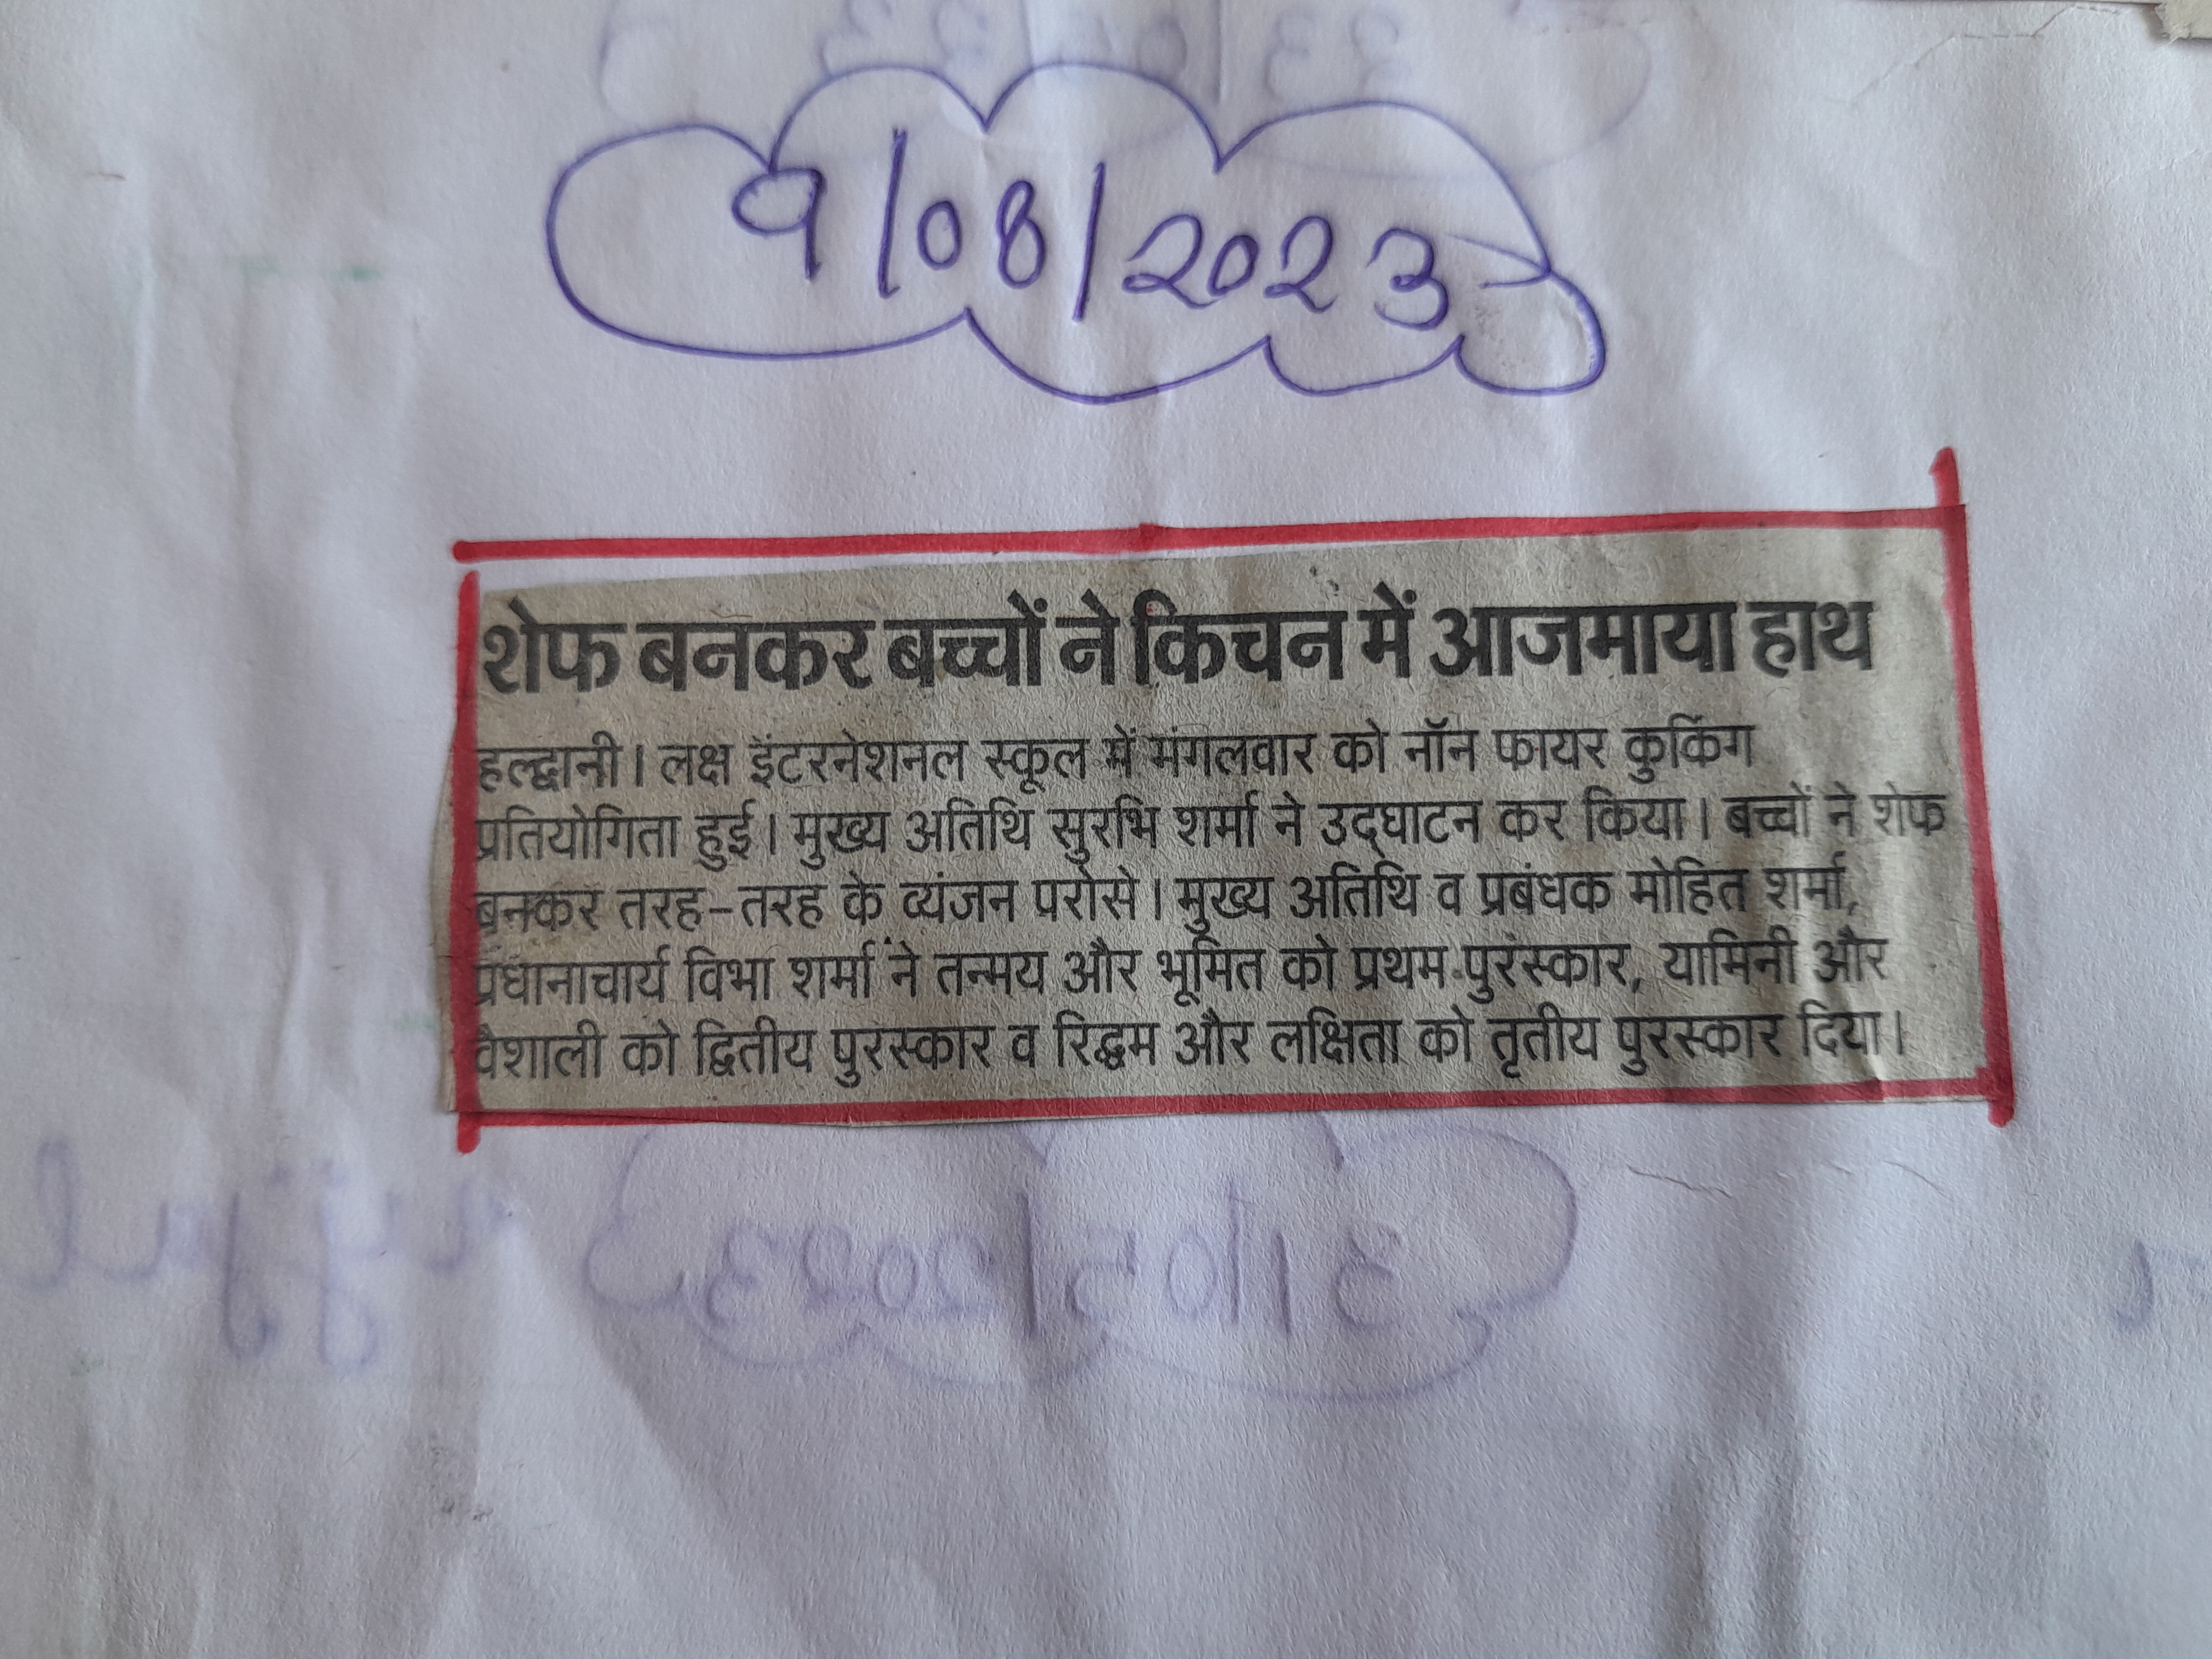 9/08/2023
शेफ बनकर बच्चों ने किचन में आजमाया हाथ
हल्द्वानी। लक्ष इंटरनेशनल स्कूल में मंगलवार को नॉन फायर कुकिंग
प्रतियोगिता हुई। मुख्य अतिथि सुरभि शर्मा ने उद्घाटन कर किया। बच्चों ने शेफ
बनकर तरह-तरह के व्यंजन परोसे। मुख्य अतिथि व प्रबंधक मोहित शर्मा,
प्रधानाचार्य विभा शर्मा ने तन्मय और भूमित को प्रथम पुरस्कार, यामिनी और
वैशाली को द्वितीय पुरस्कार व रिद्धम और लक्षिता को तृतीय पुरस्कार दिया।
31/05/2023